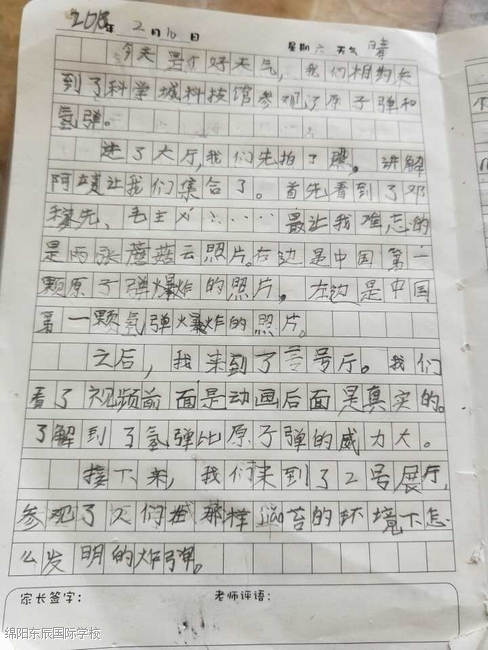 2018年 2月10日 星期六 天气 晴
今天是个好天气，我们相约来
到了科学城科技馆参观了原子弹和
氢弹。
进了大厅，我们先拍了照。讲解
阿姨让我们集合了。首先看到了邓
稼先、毛主义……最让我难忘的
是两张蘑菇云照片。右边是中国第一
颗原子弹爆炸的照片，左边是中国
第一颗氢弹爆炸的照片。
之后，我来到了壹号厅。我们
看了视频前面是动画后面是真实的。
了解到了氢弹比原子弹的威力大。
接下来，我们来到了2号展厅，
参观了人们在那样 苦的环境下怎
么发明的炸弹。
家长签字： 老师评语：
绵阳东辰国际学校